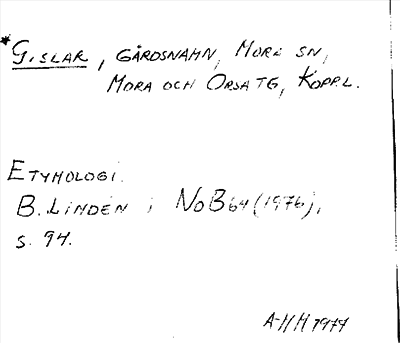 *GISLAR, GÅRDSNAMN, MORA SN,
MORA OCH ORSA TG, KOPP.L.
ETYMOLOGI.
B. LINDÉN i NoB 64 (1976),
s. 94.
A-HH 1977